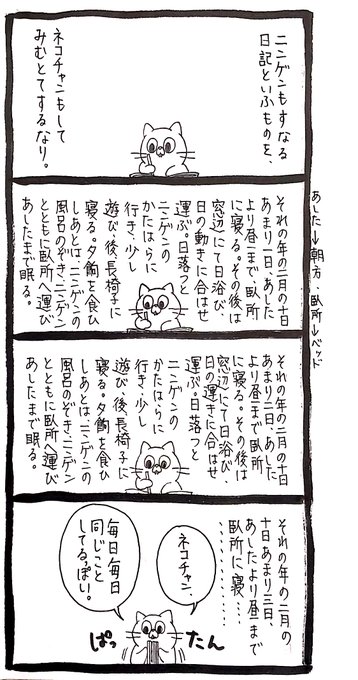 ニンゲンもすなる
日記といふものを、
ネコチャンもして
みむとてするなり。
それの年の二月の十日
あまり一日、あした
より昼まで、臥所
に寝る。その後は
窓辺にて日浴び、
日の動きに合はせ
運ぶ。日落つと
ニンゲンの
かたはらに
行き、少し
遊び、後、長椅子に
寝る。夕餉を食ひ
しあとは、ニンゲンの
風呂のぞき、ニンゲン
とともに臥所へ運び
あしたまで眠る。
あした→朝方・臥所→ベッド
それの年の二月の十日
あまり二日、あした
より昼まで臥所
に寝る。その後は
窓辺にて日浴び、
日の運きに合はせ
運ぶ。日落つと
ニンゲンの
かたはらに
行き、少し
遊び、後、長椅子に
寝る。夕餉を食ひ
しあとは、ニンゲンの
風呂のぞき、ニンゲン
とともに臥所へ運び
あしたまで眠る。
それの年の二月の
十日あまり三日、
あしたより昼まで
臥所に寝……
…………
ネコチャン、
毎日毎日
同じこと
してるっぽい。
ぱったん